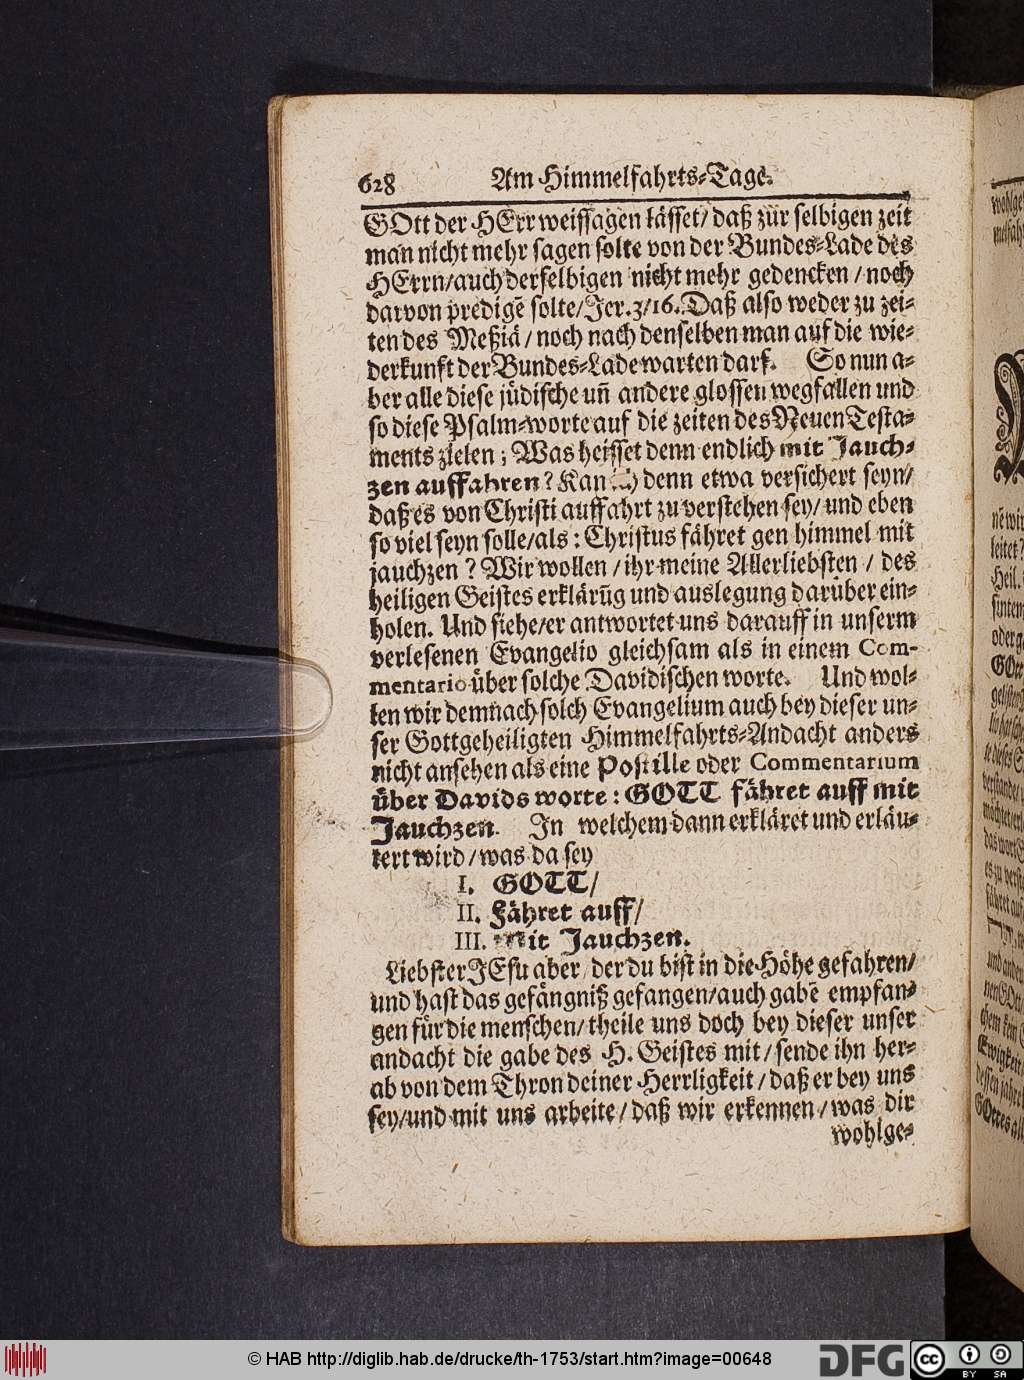 628 Am Himmelfahrts-Tage.
GOtt der HErr weissagen lässet/ daß zur selbigen zeit
man nicht mehr sagen solte von der Bundes-Lade des
HErrn/auch derselbigen nicht mehr gedencken / noch
darvon predigē solte/Jer.3/16. Daß also weder zu zei-
ten des Meßiä / noch nach denselben man auf die wie-
derkunft der Bundes-Lade warten darf. So nun a-
ber alle diese jüdische uñ andere glossen wegfallen und
so diese Psalm-worte auf die zeiten des Neuen Testa-
ments zielen ; Was heisset denn endlich mit Jauch-
zen auffahren? Kan ich denn etwa versichert seyn/
daß es von Christi auffahrt zu verstehen sey/ und eben
so viel seyn solle/als : Christus fähret gen himmel mit
jauchzen ? Wir wollen / ihr meine Allerliebsten / des
heiligen Geistes erklärūg und auslegung darüber ein-
holen. Und siehe/er antwortet uns darauff in unserm
verlesenen Evangelio gleichsam als in einem Com-
mentario über solche Davidischen worte. Und wol-
len wir demnach solch Evangelium auch bey dieser un-
ser Gottgeheiligten Himmelfahrts-Andacht anders
nicht ansehen als eine Postille oder Commentarium
über Davids worte : GOTT fähret auff mit
Jauchzen. In welchem dann erkläret und erläu-
tert wird / was da sey
I. GOTT/
II. Fähret auff/
III. Mit Jauchzen.
Liebster JEsu aber / der du bist in die Höhe gefahren/
und hast das gefängniß gefangen/auch gabē empfan-
gen für die menschen/ theile uns doch bey dieser unser
andacht die gabe des H. Geistes mit / sende ihn her-
ab von dem Thron deiner Herrligkeit / daß er bey uns
sey/und mit uns arbeite / daß wir erkennen / was dir
wohlge-
© HAB http://diglib.hab.de/drucke/th-1753/start.htm?image=00648
DFG
cc BY SA